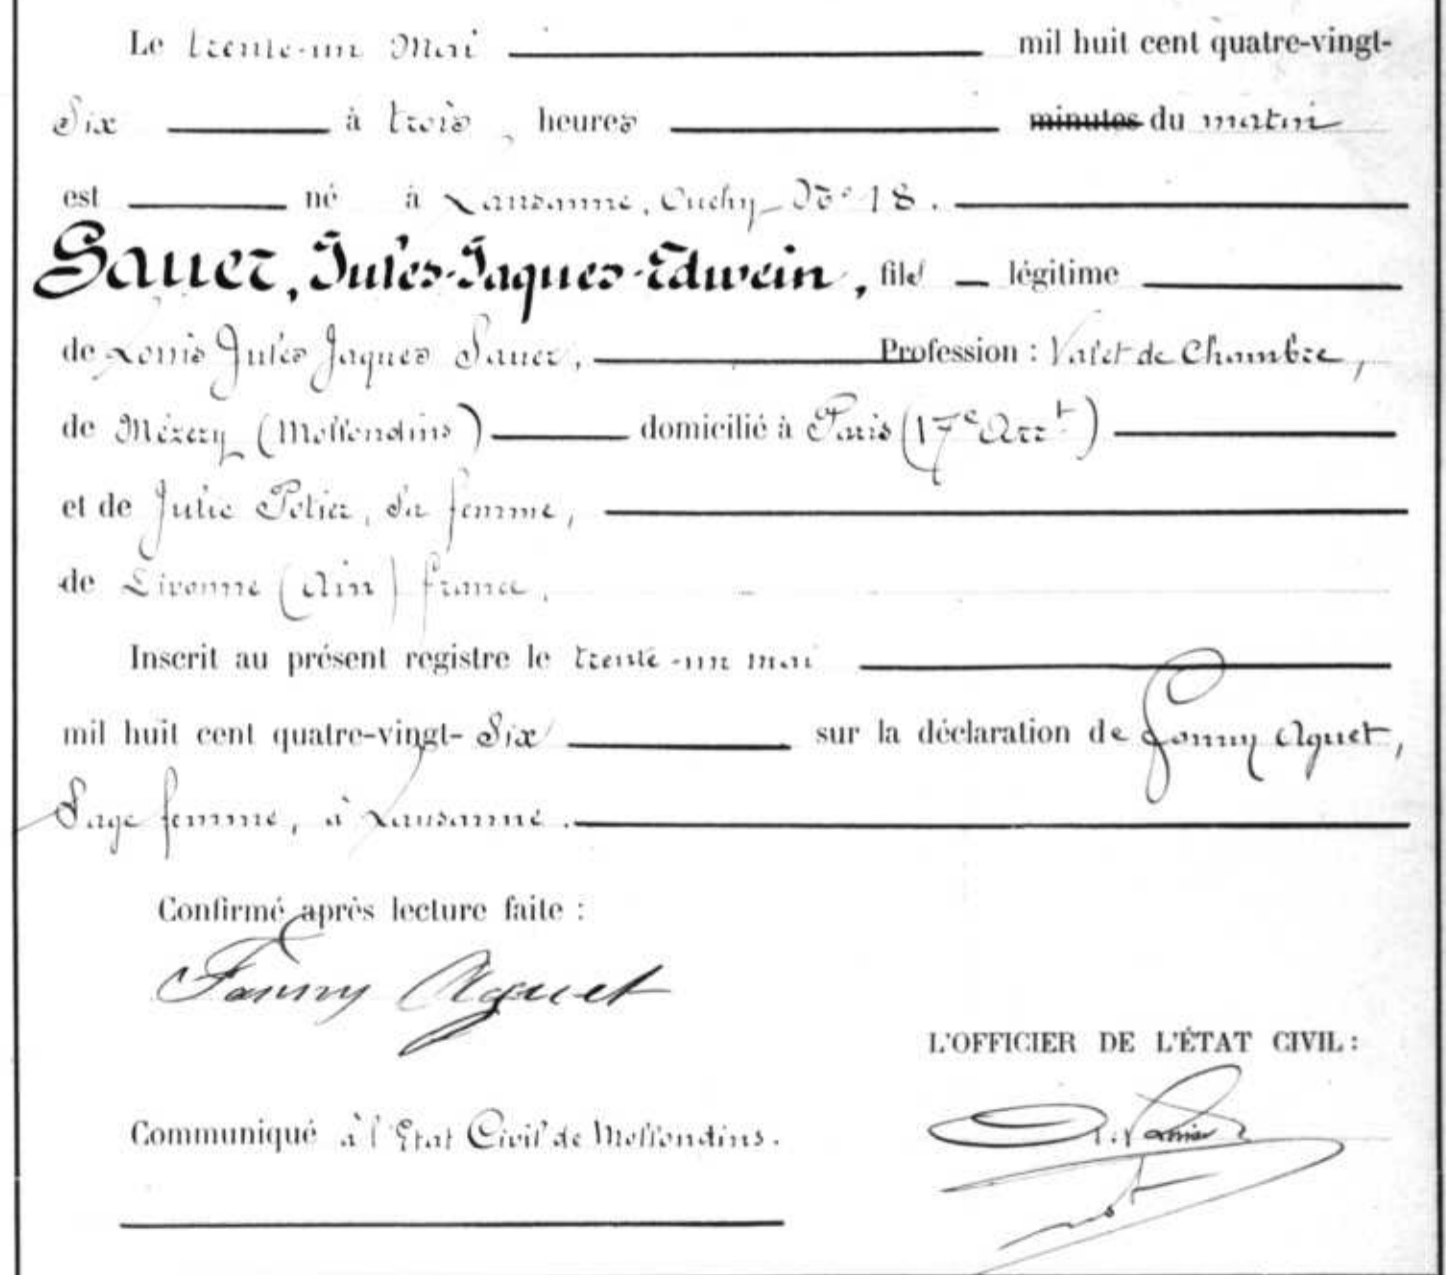 Le trente-un Mai mil huit cent quatre-vingt-
Six à trois, heures minutes du matin
est né à Lausanne, Ouchy No 18.
Sauer, Jules-Jaques-Edwein, fils légitime
de Louis Jules Jaques Sauer, Profession : Valet de Chambre,
de Mézery (Mollondins) domicilié à Paris (17e Arrt)
et de Julie Petier, sa femme,
de Divonne (Ain) france,
Inscrit au présent registre le trente-un mai
mil huit cent quatre-vingt- Six sur la déclaration de Fanny Aguet,
Sage femme, à Lausanne.
Confirmé après lecture faite :
Fanny Aguet
L'OFFICIER DE L'ÉTAT CIVIL :
Communiqué à l'Etat Civil de Mollondins.